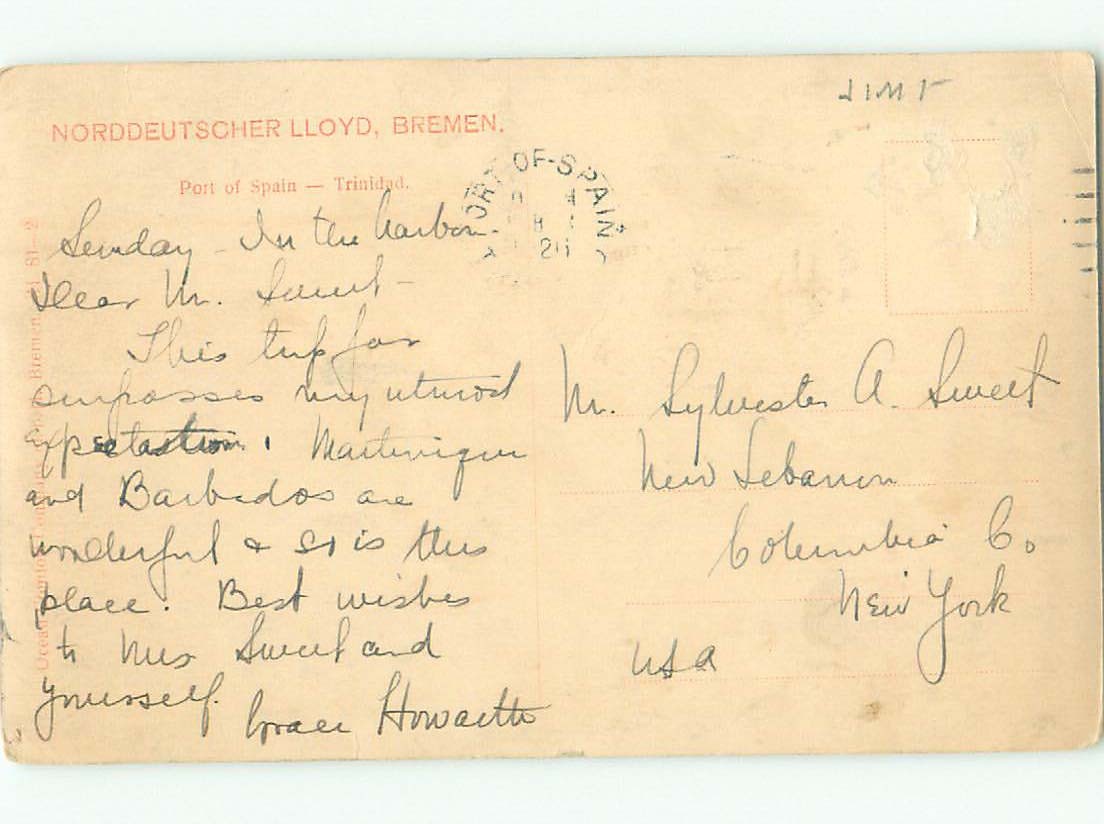 NORDDEUTSCHER LLOYD, BREMEN.
Port of Spain — Trinidad.
PORT-OF-SPAIN
Sunday - In the harbor.
Dear Mr. Sweet -
This trip far
surpasses my utmost
expectation. Martinique
and Barbados are
wonderful & so is this
place. Best wishes
to Mrs Sweet and
yourself.
Grace Howarth
Mr. Sylvester A. Sweet
New Lebanon
Columbia Co
New York
USA